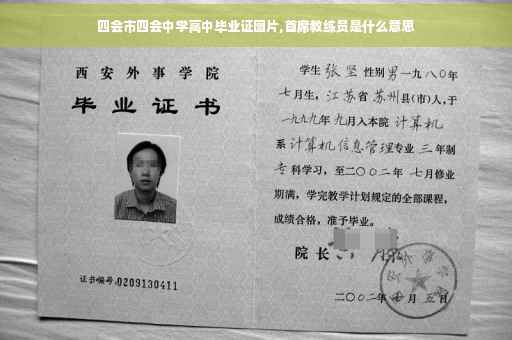 四会市四会中学高中毕业证图片,首席教练员是什么意思
西安外事学院
毕业证书
证书编号:0209130411
学生 张坚 性别男一九八〇年
七月生,江苏省苏州县(市)人,于
一九九九年九月入本院计算机
系计算机信息管理专业三年制
专科学习,至二〇〇二年七月修业
期满,学完教学计划规定的全部课程,
成绩合格,准予毕业。
院长
二〇〇二年 月五日